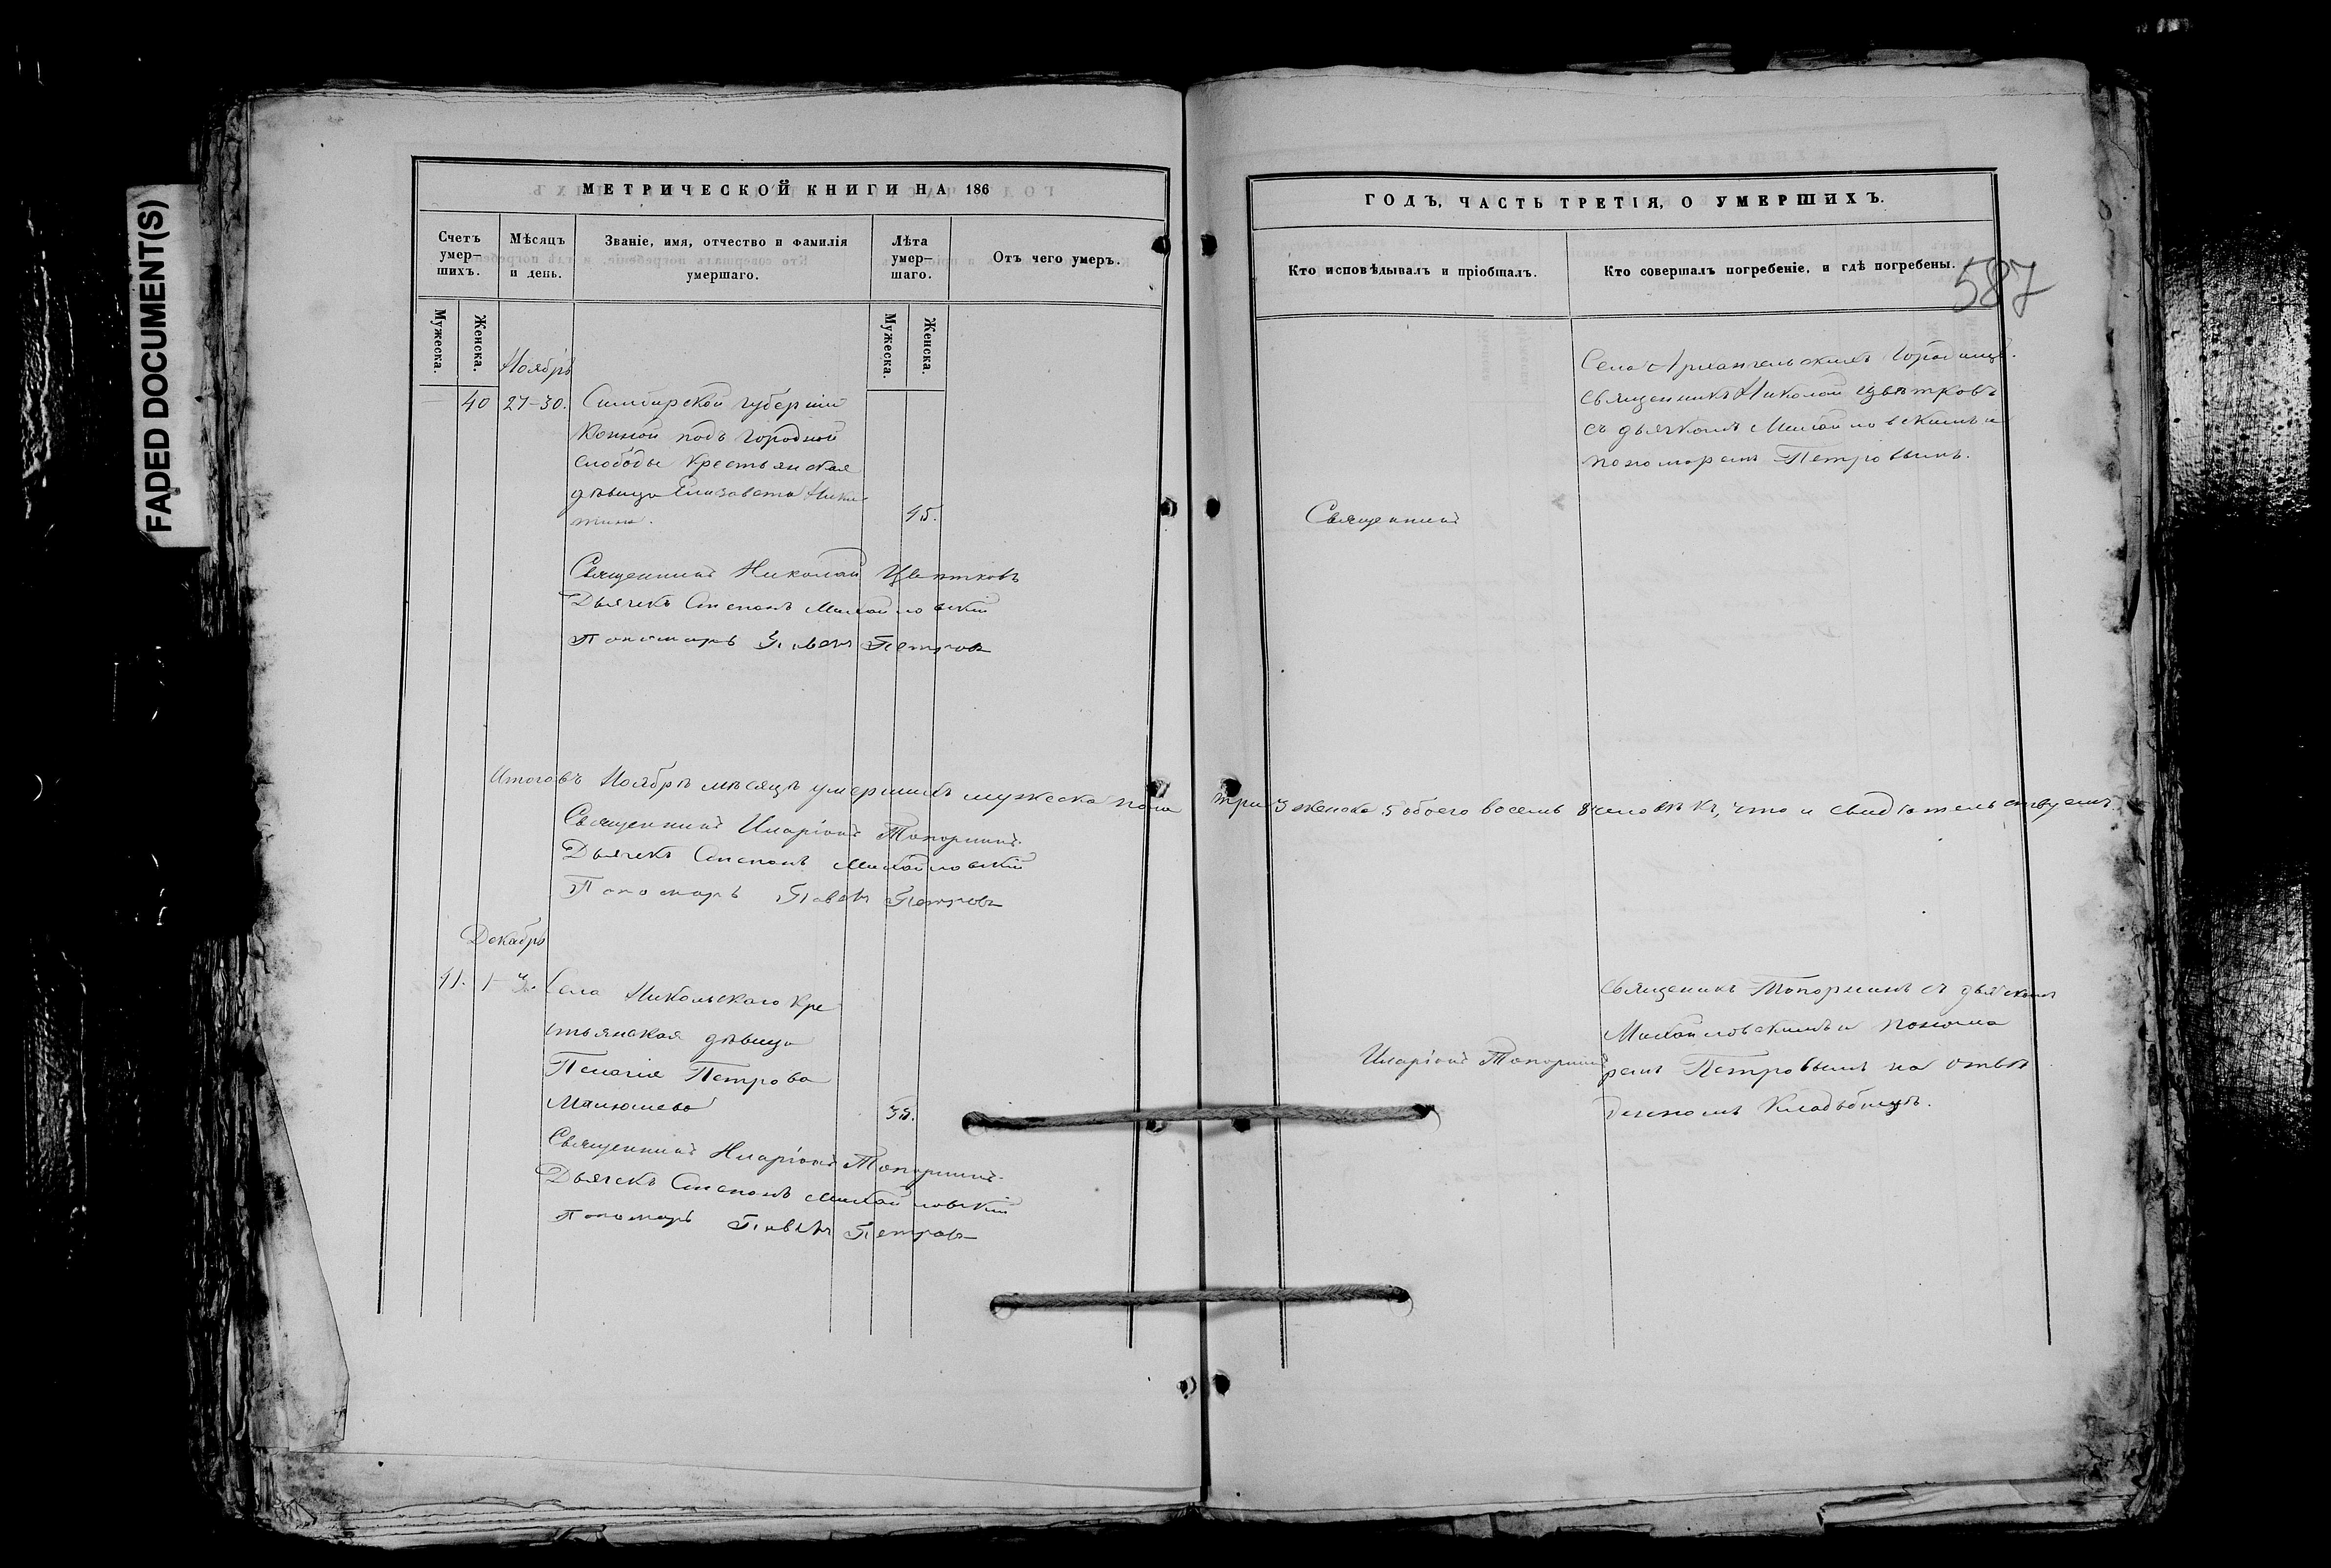 FADED DOCUMENT(S)
МЕТРИЧЕСКОЙ КНИГИ НА 186
Счетъ умер-шихъ.
Мѣсяцъ и день.
Званіе, имя, отчество и фамилія умершаго.
Лѣта умер-шаго.
Отъ чего умеръ.
Мужеска.
Женска.
Мужеска.
Женска.
Ноябрь
40 27-30. Симбирской губерніи
Конной подъ городной
слободы крестьянская
дѣвица Елизавета Ники-
тина. 45.
Священникъ Николай Цвѣтковъ
Дьячекъ Степанъ Михайловскій
Пономарь Павелъ Петровъ
Итого въ Ноябрѣ мѣсяцѣ умершихъ мужеска пола
Священникъ Иларіонъ Топорнинъ.
Дьячекъ Степанъ Михайловскій
Пономарь Павелъ Петровъ
Декабрь
41. 1 3. Села Никольскаго кре
стьянская дѣвица
Пелагія Петрова
Священникъ Иларіонъ Топорнинъ.
Дьячекъ Степанъ Михайловскій
Пономарь Павелъ Петровъ
ГОДЪ, ЧАСТЬ ТРЕТІЯ, О УМЕРШИХЪ.
Кто исповѣдывалъ и пріобщалъ.
Кто совершалъ погребеніе, и гдѣ погребены.
587
Села Архангельскихъ Городищъ.
священникъ Николай Цвѣтковъ
съ дьячкомъ Михайловскимъ и
пономаремъ Петровымъ.
Священникъ
три 3 женска 5 обоего восемь 8 человѣкъ, что и свидѣтельствуемъ.
священникъ Топорнинъ съ дьячкомъ
Михайловскимъ и понома
Иларіонъ Топорнинъ
ремъ Петровымъ на отве
денномъ кладбищѣ.